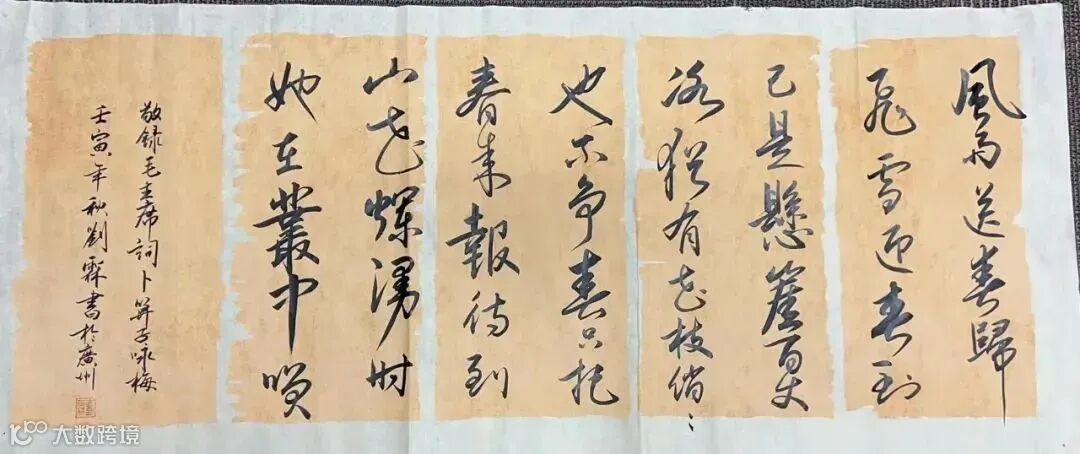 風雨送春歸
飛雪迎春到
已是懸崖百丈
冰猶有花枝俏〻
也不爭春只把
春来報待到
山花爛漫时
她在叢中咲
敬録毛主席詞卜算子咏梅
壬寅年秋劉霖書於廣州
大数跨境